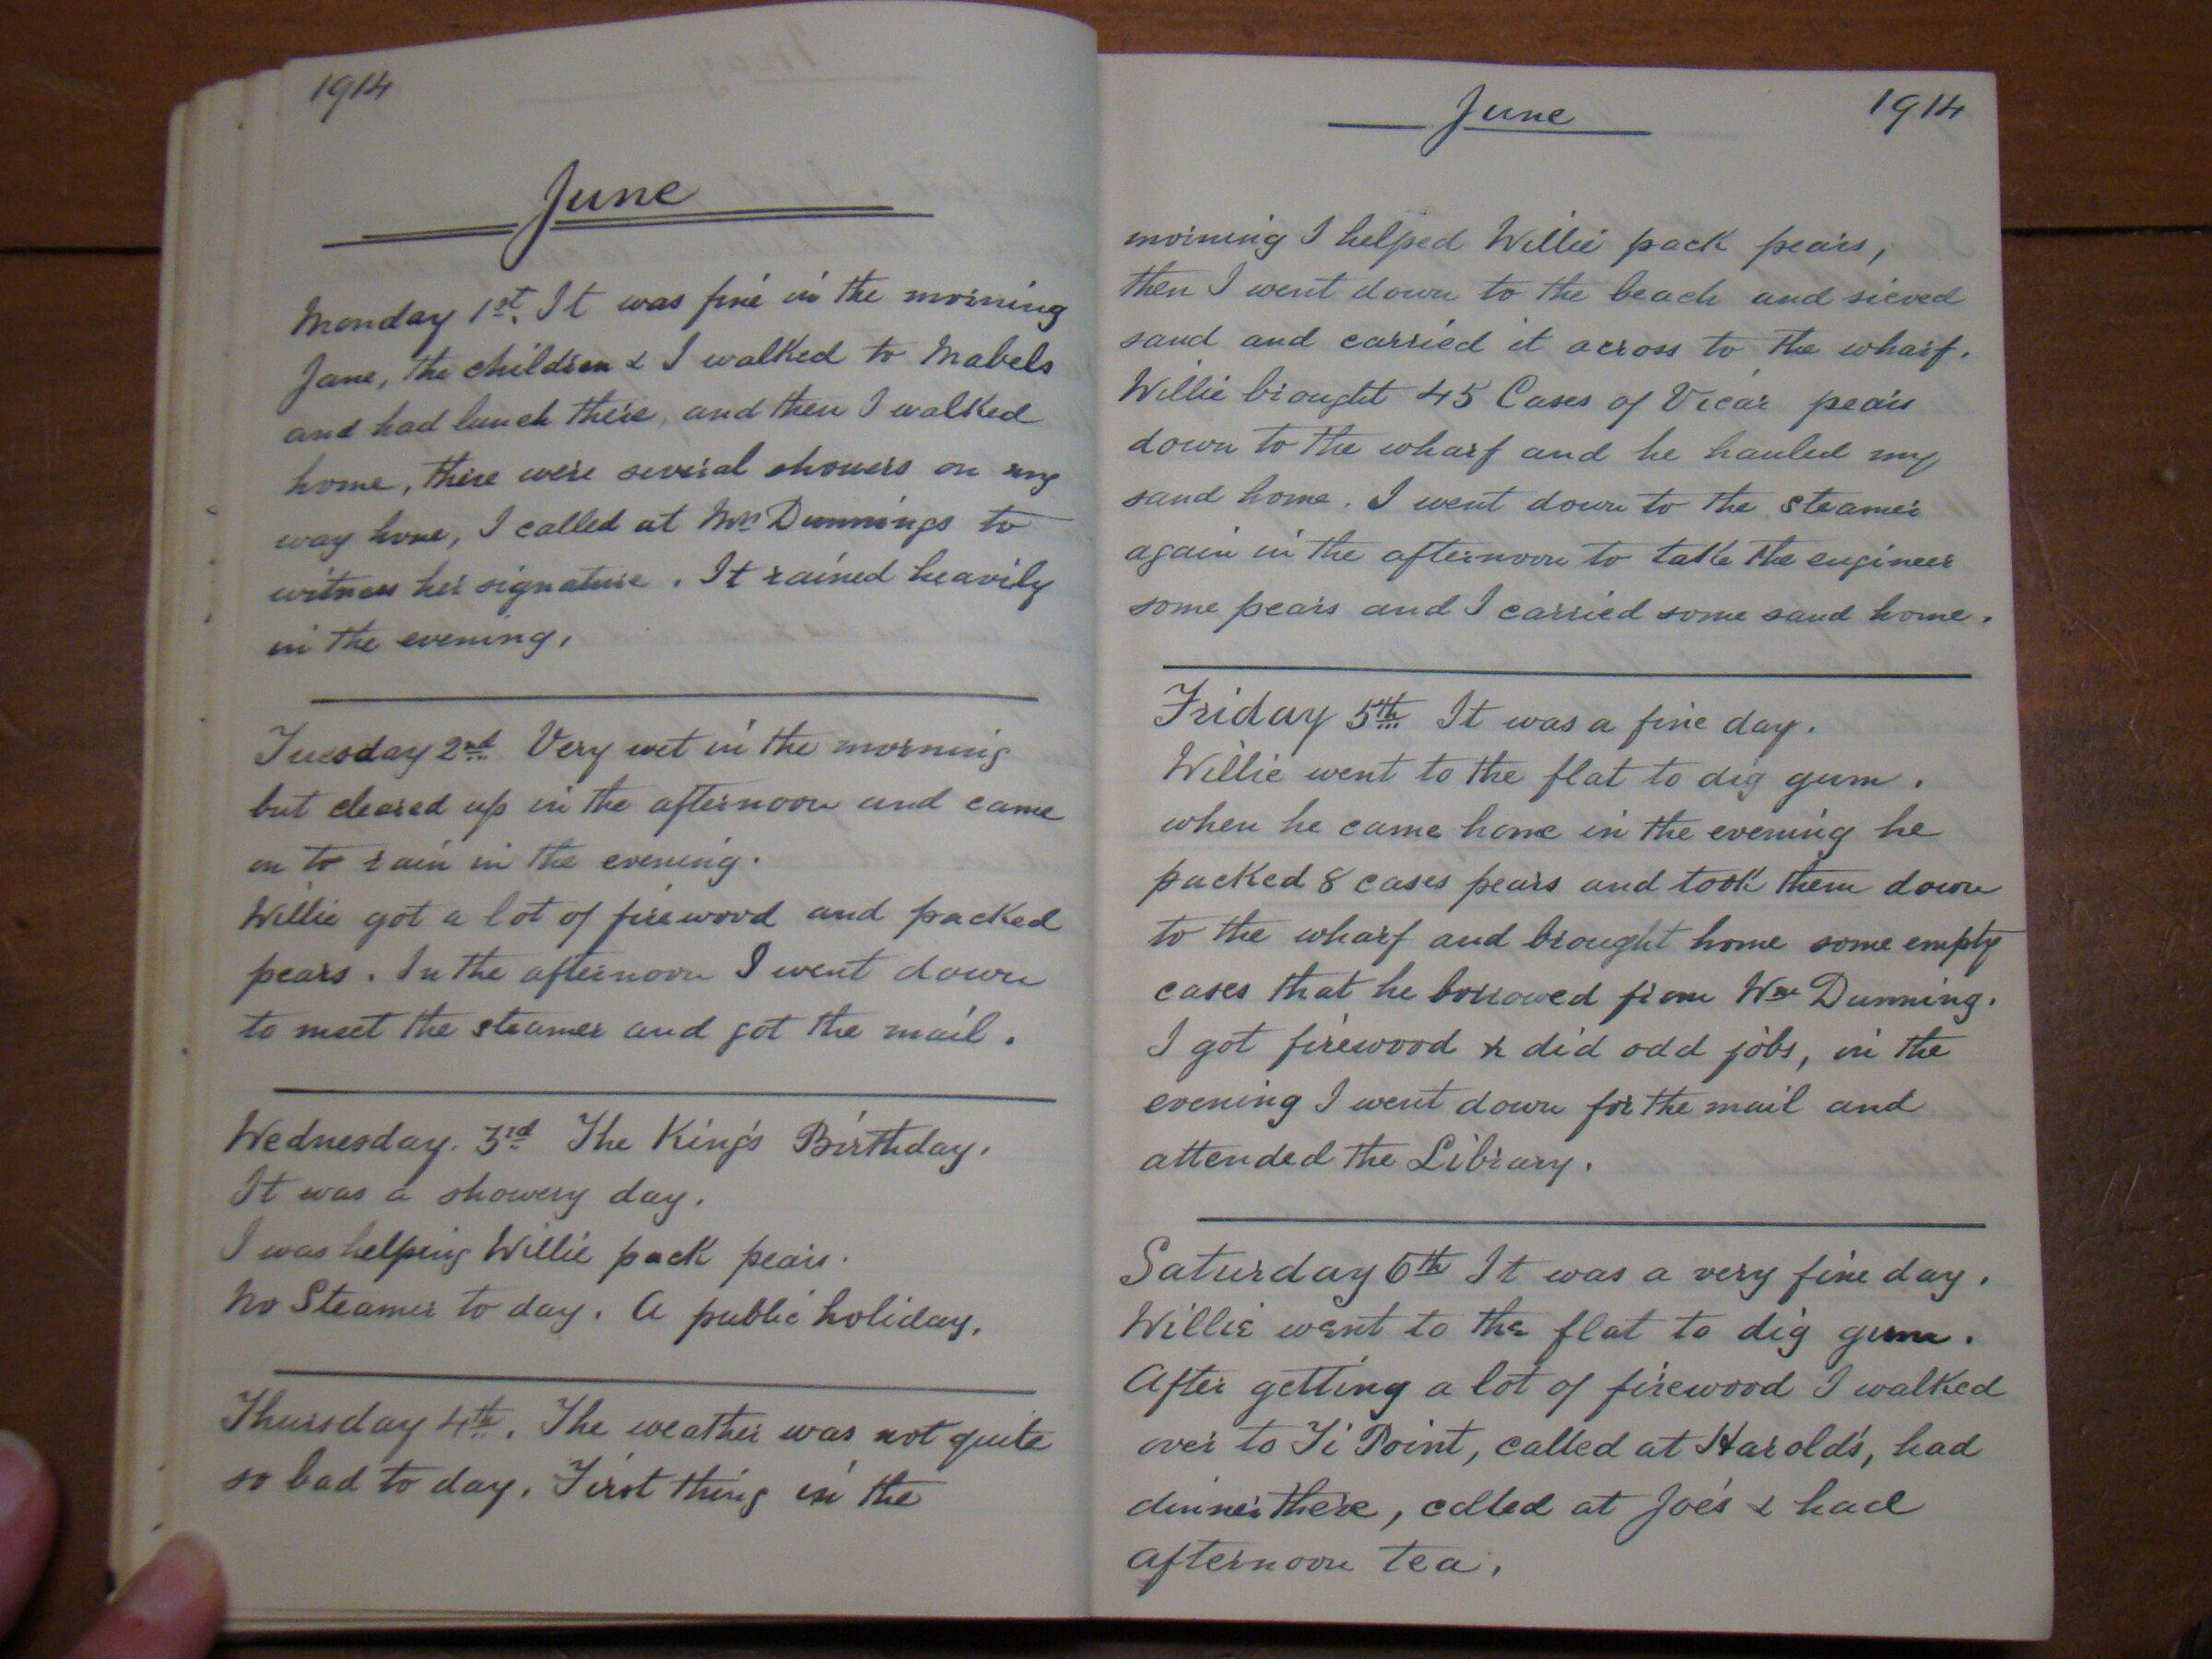 1914
June
Monday 1st. It was fine in the morning
Jane, the children & I walked to Mabels
and had lunch there, and then I walked
home, there were several showers on my
way home, I called at Mrs Dunnings to
witness her signature. It rained heavily
in the evening.
Tuesday 2nd Very wet in the morning
but cleared up in the afternoon and came
on to rain in the evening.
Willie got a lot of firewood and packed
pears. In the afternoon I went down
to meet the steamer and got the mail.
Wednesday. 3rd The King's Birthday.
It was a showery day.
I was helping Willie pack pears.
No Steamer to day. A public holiday.
Thursday 4th. The weather was not quite
so bad to day. First thing in the
June 1914
morning I helped Willie pack pears,
then I went down to the beach and sieved
sand and carried it across to the wharf.
Willie brought 45 Cases of Vicar pears
down to the wharf and he hauled my
sand home. I went down to the steamer
again in the afternoon to take the engineer
some pears and I carried some sand home.
Friday 5th It was a fine day.
Willie went to the flat to dig gum.
when he came home in the evening he
packed 8 cases pears and took them down
to the wharf and brought home some empty
cases that he borrowed from Wm Dunning.
I got firewood & did odd jobs, in the
evening I went down for the mail and
attended the Library.
Saturday 6th It was a very fine day.
Willie went to the flat to dig gum.
After getting a lot of firewood I walked
over to Ti Point, called at Harold's, had
dinner there, called at Joe's & had
afternoon tea.